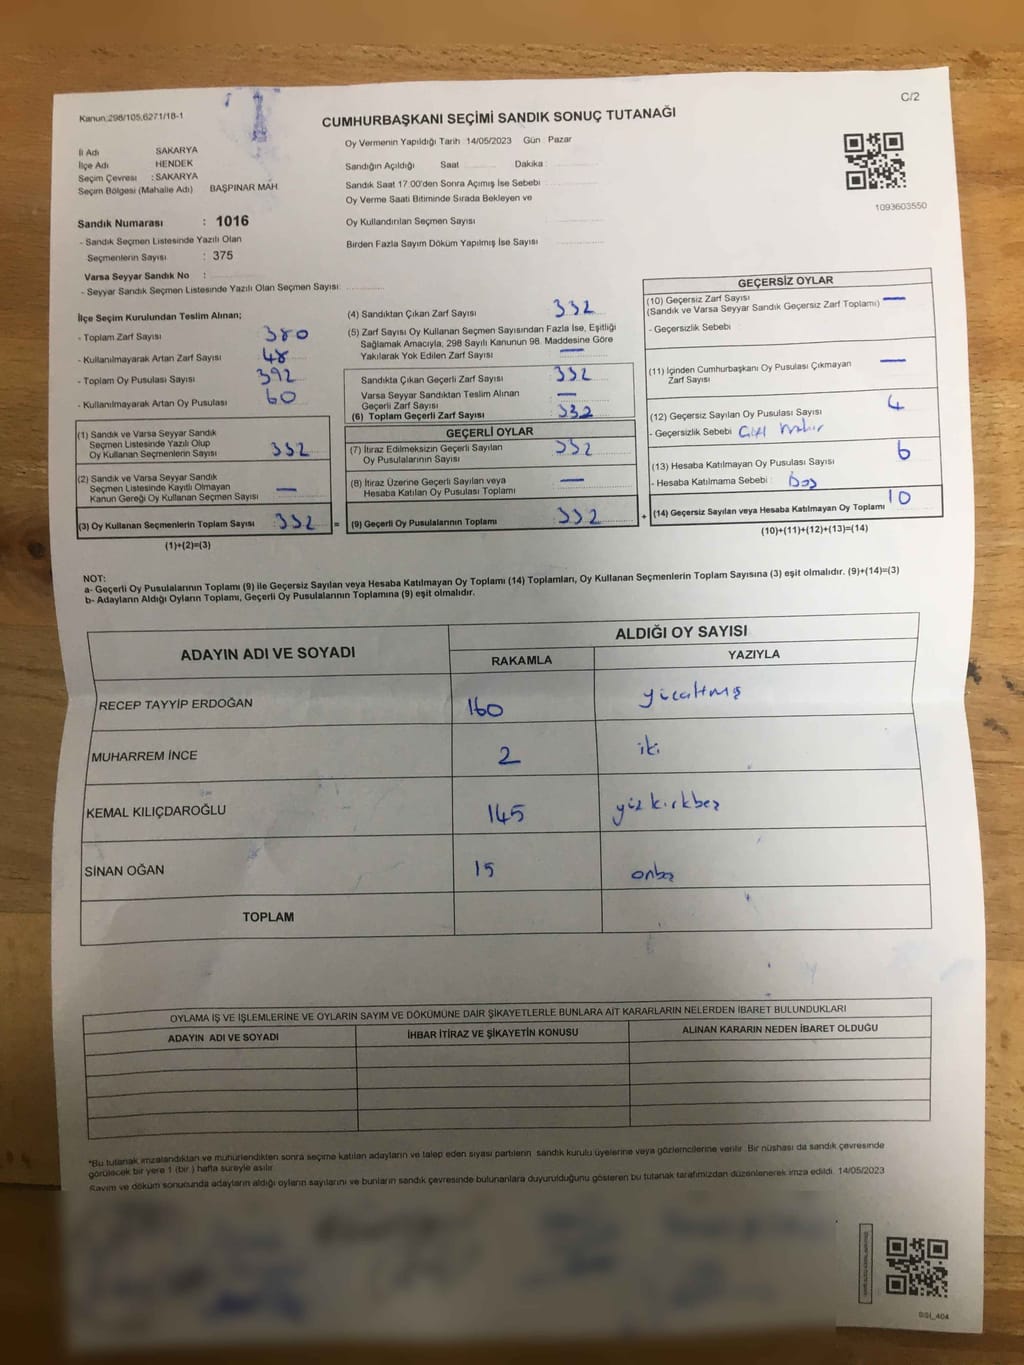 C/2
Kanun;298/105,6271/18-1
CUMHURBAŞKANI SEÇİMİ SANDIK SONUÇ TUTANAĞI
İl Adı SAKARYA
İlçe Adı HENDEK
Seçim Çevresi : SAKARYA
Seçim Bölgesi (Mahalle Adı) BAŞPINAR MAH.
Sandık Numarası : 1016
- Sandık Seçmen Listesinde Yazılı Olan
Seçmenlerin Sayısı : 375
Varsa Seyyar Sandık No :
- Seyyar Sandık Seçmen Listesinde Yazılı Olan Seçmen Sayısı:
Oy Vermenin Yapıldığı Tarih : 14/05/2023 Gün : Pazar
Sandığın Açıldığı Saat Dakika :
Sandık Saat 17:00'den Sonra Açımış İse Sebebi :
Oy Verme Saati Bitiminde Sırada Bekleyen ve
Oy Kullandırılan Seçmen Sayısı
Birden Fazla Sayım Döküm Yapılmış İse Sayısı
1093603550
İlçe Seçim Kurulundan Teslim Alınan;
- Toplam Zarf Sayısı 380
- Kullanılmayarak Artan Zarf Sayısı 48
- Toplam Oy Pusulası Sayısı 392
- Kullanılmayarak Artan Oy Pusulası 60
(1) Sandık ve Varsa Seyyar Sandık
Seçmen Listesinde Yazılı Olup
Oy Kullanan Seçmenlerin Sayısı 332
(2) Sandık ve Varsa Seyyar Sandık
Seçmen Listesinde Kayıtlı Olmayan
Kanun Gereği Oy Kullanan Seçmen Sayısı —
(3) Oy Kullanan Seçmenlerin Toplam Sayısı 332 =
(1)+(2)=(3)
(4) Sandıktan Çıkan Zarf Sayısı 332
(5) Zarf Sayısı Oy Kullanan Seçmen Sayısından Fazla İse, Eşitliği
Sağlamak Amacıyla; 298 Sayılı Kanunun 98. Maddesine Göre
Yakılarak Yok Edilen Zarf Sayısı —
Sandıkta Çıkan Geçerli Zarf Sayısı 332
Varsa Seyyar Sandıktan Teslim Alınan
Geçerli Zarf Sayısı —
(6) Toplam Geçerli Zarf Sayısı 332
GEÇERLİ OYLAR
(7) İtiraz Edilmeksizin Geçerli Sayılan
Oy Pusulalarının Sayısı 332
(8) İtiraz Üzerine Geçerli Sayılan veya
Hesaba Katılan Oy Pusulası Toplamı —
(9) Geçerli Oy Pusulalarının Toplamı 332 +
GEÇERSİZ OYLAR
(10) Geçersiz Zarf Sayısı
(Sandık ve Varsa Seyyar Sandık Geçersiz Zarf Toplamı) —
- Geçersizlik Sebebi
(11) İçinden Cumhurbaşkanı Oy Pusulası Çıkmayan
Zarf Sayısı —
(12) Geçersiz Sayılan Oy Pusulası Sayısı 4
- Geçersizlik Sebebi
(13) Hesaba Katılmayan Oy Pusulası Sayısı 6
- Hesaba Katılmama Sebebi : Boş
(14) Geçersiz Sayılan veya Hesaba Katılmayan Oy Toplamı 10
(10)+(11)+(12)+(13)=(14)
NOT:
a- Geçerli Oy Pusulalarının Toplamı (9) ile Geçersiz Sayılan veya Hesaba Katılmayan Oy Toplamı (14) Toplamları, Oy Kullanan Seçmenlerin Toplam Sayısına (3) eşit olmalıdır. (9)+(14)=(3)
b- Adayların Aldığı Oyların Toplamı, Geçerli Oy Pusulalarının Toplamına (9) eşit olmalıdır.
ADAYIN ADI VE SOYADI ALDIĞI OY SAYISI
RAKAMLA YAZIYLA
RECEP TAYYİP ERDOĞAN 160 yüzaltmış
MUHARREM İNCE 2 iki
KEMAL KILIÇDAROĞLU 145 yüzkırkbeş
SİNAN OĞAN 15 onbeş
TOPLAM
OYLAMA İŞ VE İŞLEMLERİNE VE OYLARIN SAYIM VE DÖKÜMÜNE DAİR ŞİKAYETLERLE BUNLARA AİT KARARLARIN NELERDEN İBARET BULUNDUKLARI
ADAYIN ADI VE SOYADI İHBAR İTİRAZ VE ŞİKAYETİN KONUSU ALINAN KARARIN NEDEN İBARET OLDUĞU
*Bu tutanak imzalandıktan ve mühürlendikten sonra seçime katılan adayların ve talep eden siyasi partilerin sandık kurulu üyelerine veya gözlemcilerine verilir. Bir nüshası da sandık çevresinde
görülecek bir yere 1 (bir ) hafta süreyle asılır.
Sayım ve döküm sonucunda adayların aldığı oyların sayılarını ve bunların sandık çevresinde bulunanlara duyurulduğunu gösteren bu tutanak tarafımızdan düzenlenerek imza edildi. 14/05/2023